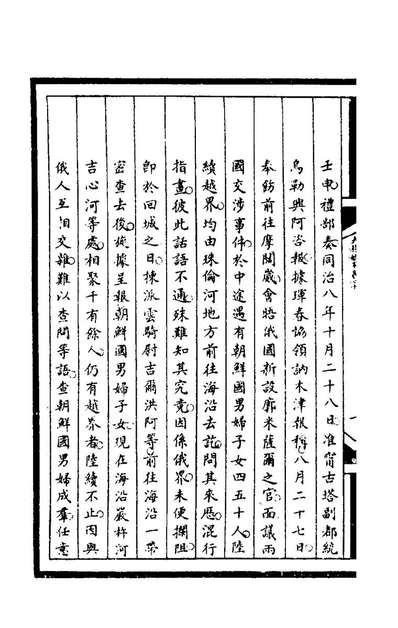 壬申。禮部奏。同治八年十月二十八日。准甯古塔副都統
烏勒興阿咨報。據琿春協領訥木津報稱。八月二十七日。
奉飭前往摩闊崴會晤俄國新設廓米薩爾之官。面議兩
國交涉事件。於中途遇有朝鮮國男婦子女四五十人。陸
續越界。均由珠倫河地方前往海沿去訖。問其來歷。混行
指畫。彼此話語不通。殊難知其究竟。因係俄界。未便攔阻。
即於回城之日。揀派雲騎尉吉爾洪阿等前往海沿一帶
密查去後。旋據呈報。朝鮮國男婦子女。現在海沿巖杵河
吉心河等處。相聚千有餘人。仍有越界者。陸續不止。因與
俄人互相交雜。難以查問等語。查朝鮮國男婦成羣。任意